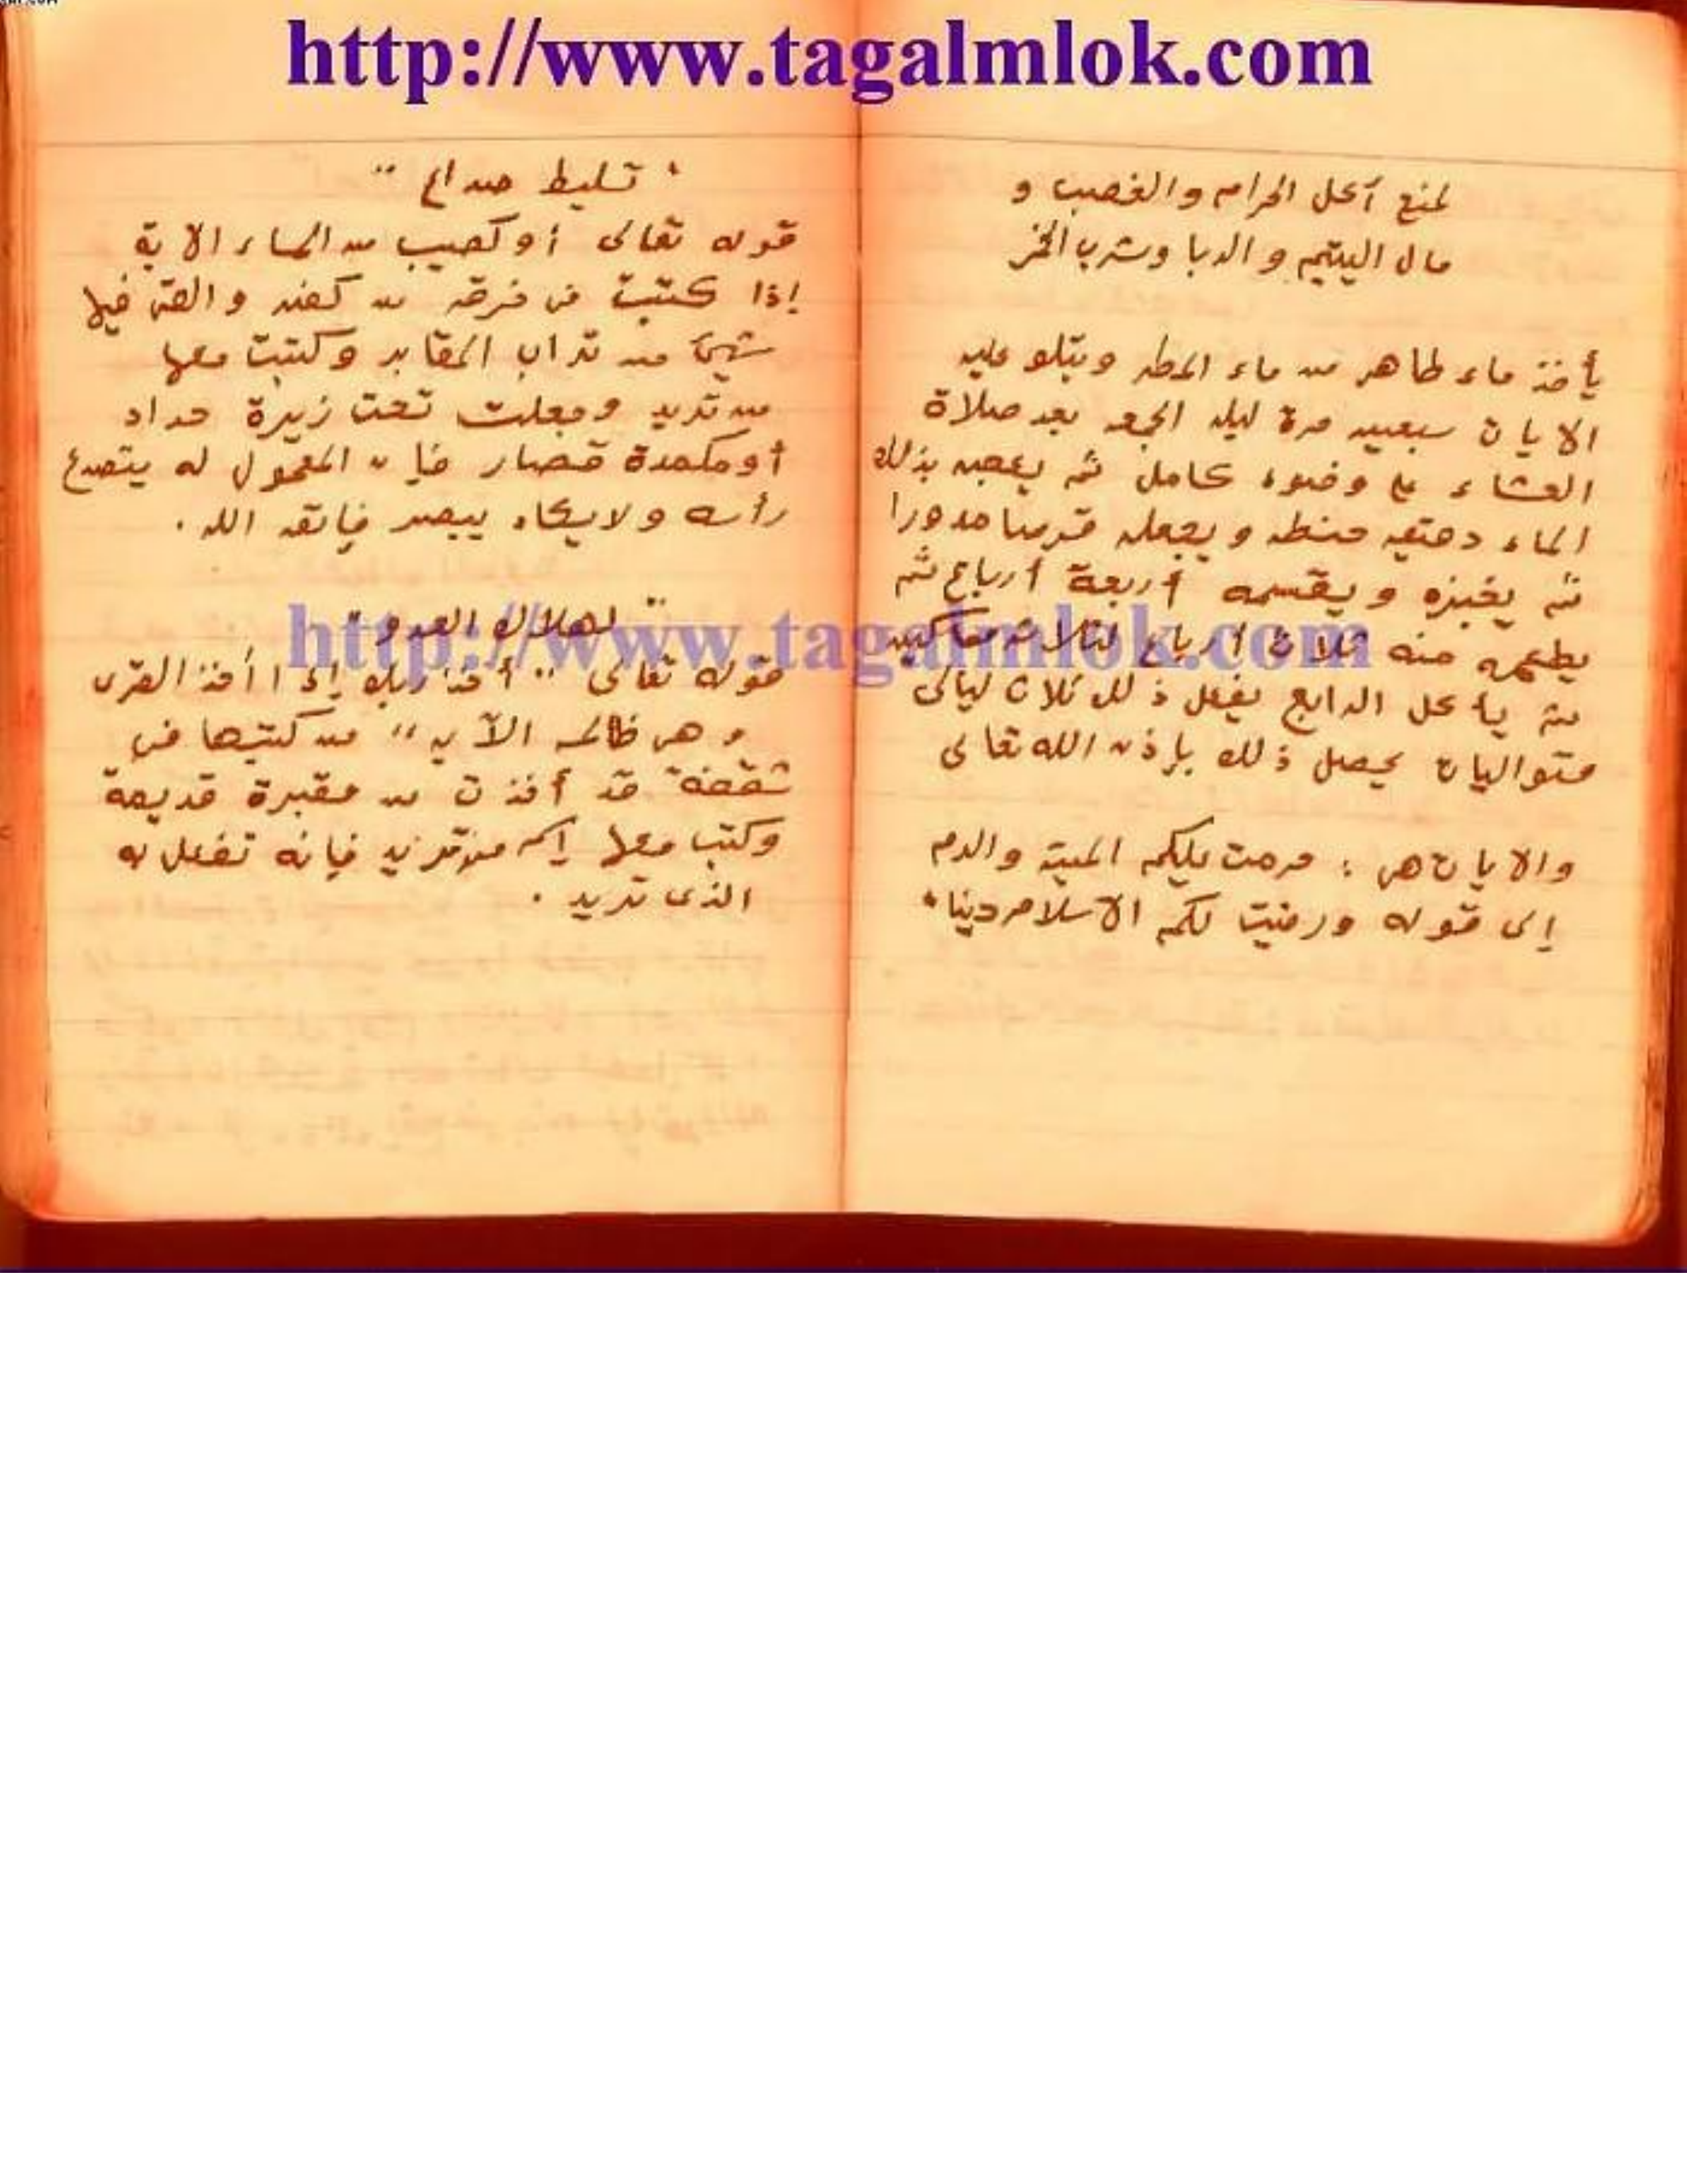 http://www.tagalmlok.com
لمنع آكل الحرام والغصب و
مال اليتيم والربا وشرب الخمر
يأخذ ماء طاهر من ماء المطر ويتلو عليه
الايات سبعين مرة ليلة الجمعه بعد صلاة
العشاء على وضوء كامل ثم يعجن بذلك
الماء دقيق حنطه ويجعله قرصا مدورا
ثم يخبزه ويقسمه أربعة أرباع ثم
يطعم منه ثلاث أرباع لثلاث مساكين
ثم يأكل الرابع يفعل ذلك ثلاث ليالى
متواليات يحصل ذلك بإذن الله تعالى
والايات هى : حرمت عليكم الميتة والدم
إلى قوله ورضيت لكم الاسلام دينا"
" تسليط صداع "
قوله تعالى أو كصيب من السماء الاية
إذا كتبت فى خرقه من كفن والقى فيها
شيئ من تراب المقابر وكتبت معها
من تريد وجعلت تحت زبرة حداد
أو مكمدة قصار فإن المعمول له يتصدع
رأسه ولا يكاد يبصر فإتق الله .
" لهلاك العدو "
http://www.tagalmlok.com
قوله تعالى " أخذ ربك إذا أخذ القرى
وهى ظالمه الآيه " من كتبها فى
شقفة قد أخذت من مقبرة قديمة
وكتب معها إسم من تريد فإنه تفعل به
الذى تريد .